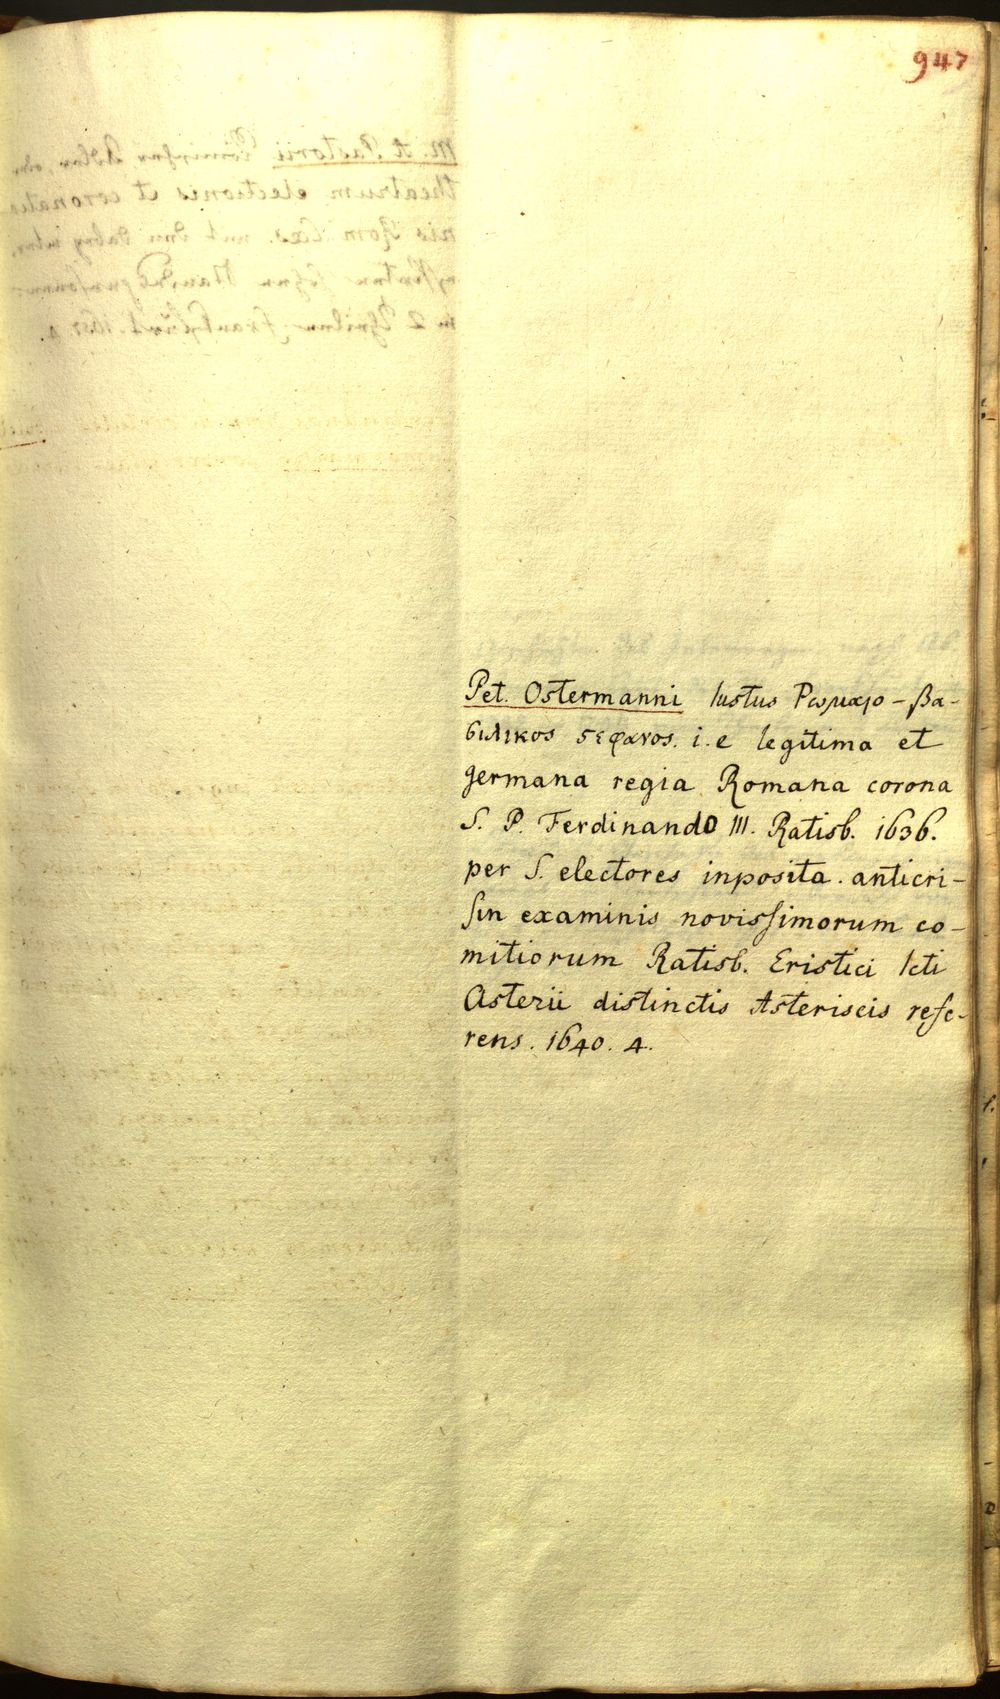 947
Pet. Ostermanni Iustus Ρωμαιο-βα-
σιλικος ϛεφανος. i.e legitima et
germana regia Romana corona
S. P. Ferdinando III. Ratisb. 1636.
per S. electores inposita. anticri-
sin examinis novissimorum co-
mitiorum Ratisb. Eristici Icti
Asterii distinctis Asteriscis refe-
rens. 1640. 4.